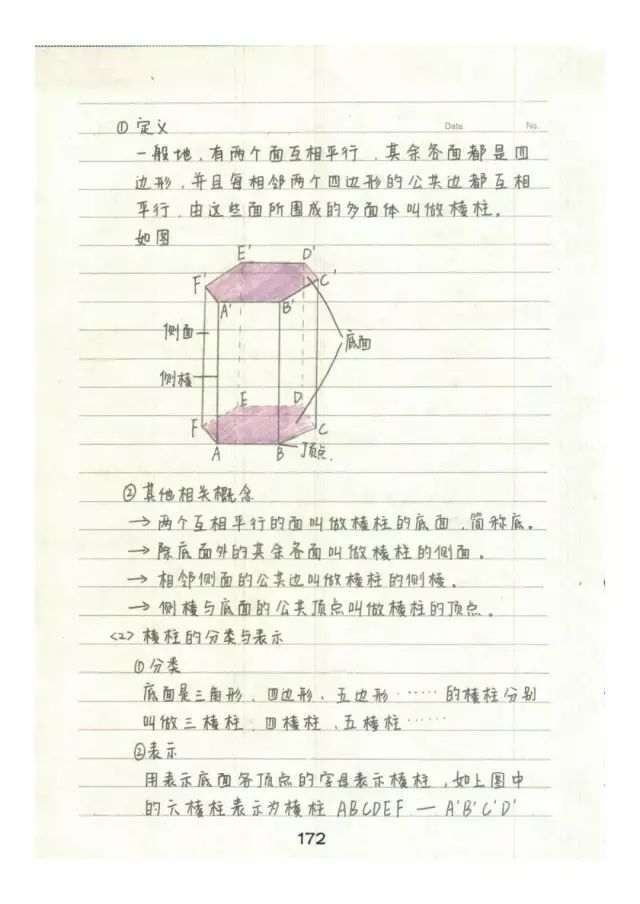 Date. No.
①定义
一般地,有两个面互相平行,其余各面都是四
边形,并且每相邻两个四边形的公共边都互相
平行,由这些面所围成的多面体叫做棱柱。
如图
E' D'
F' C'
A' B'
侧面
底面
侧棱
E D
F C
A B 顶点.
②其他相关概念
→两个互相平行的面叫做棱柱的底面,简称底。
→除底面外的其余各面叫做棱柱的侧面。
→相邻侧面的公共边叫做棱柱的侧棱。
→侧棱与底面的公共顶点叫做棱柱的顶点。
<2>棱柱的分类与表示
①分类
底面是三角形、四边形、五边形……的棱柱分别
叫做三棱柱、四棱柱、五棱柱……
②表示
用表示底面各顶点的字母表示棱柱,如上图中
的六棱柱表示为棱柱 ABCDEF — A'B'C'D'
172